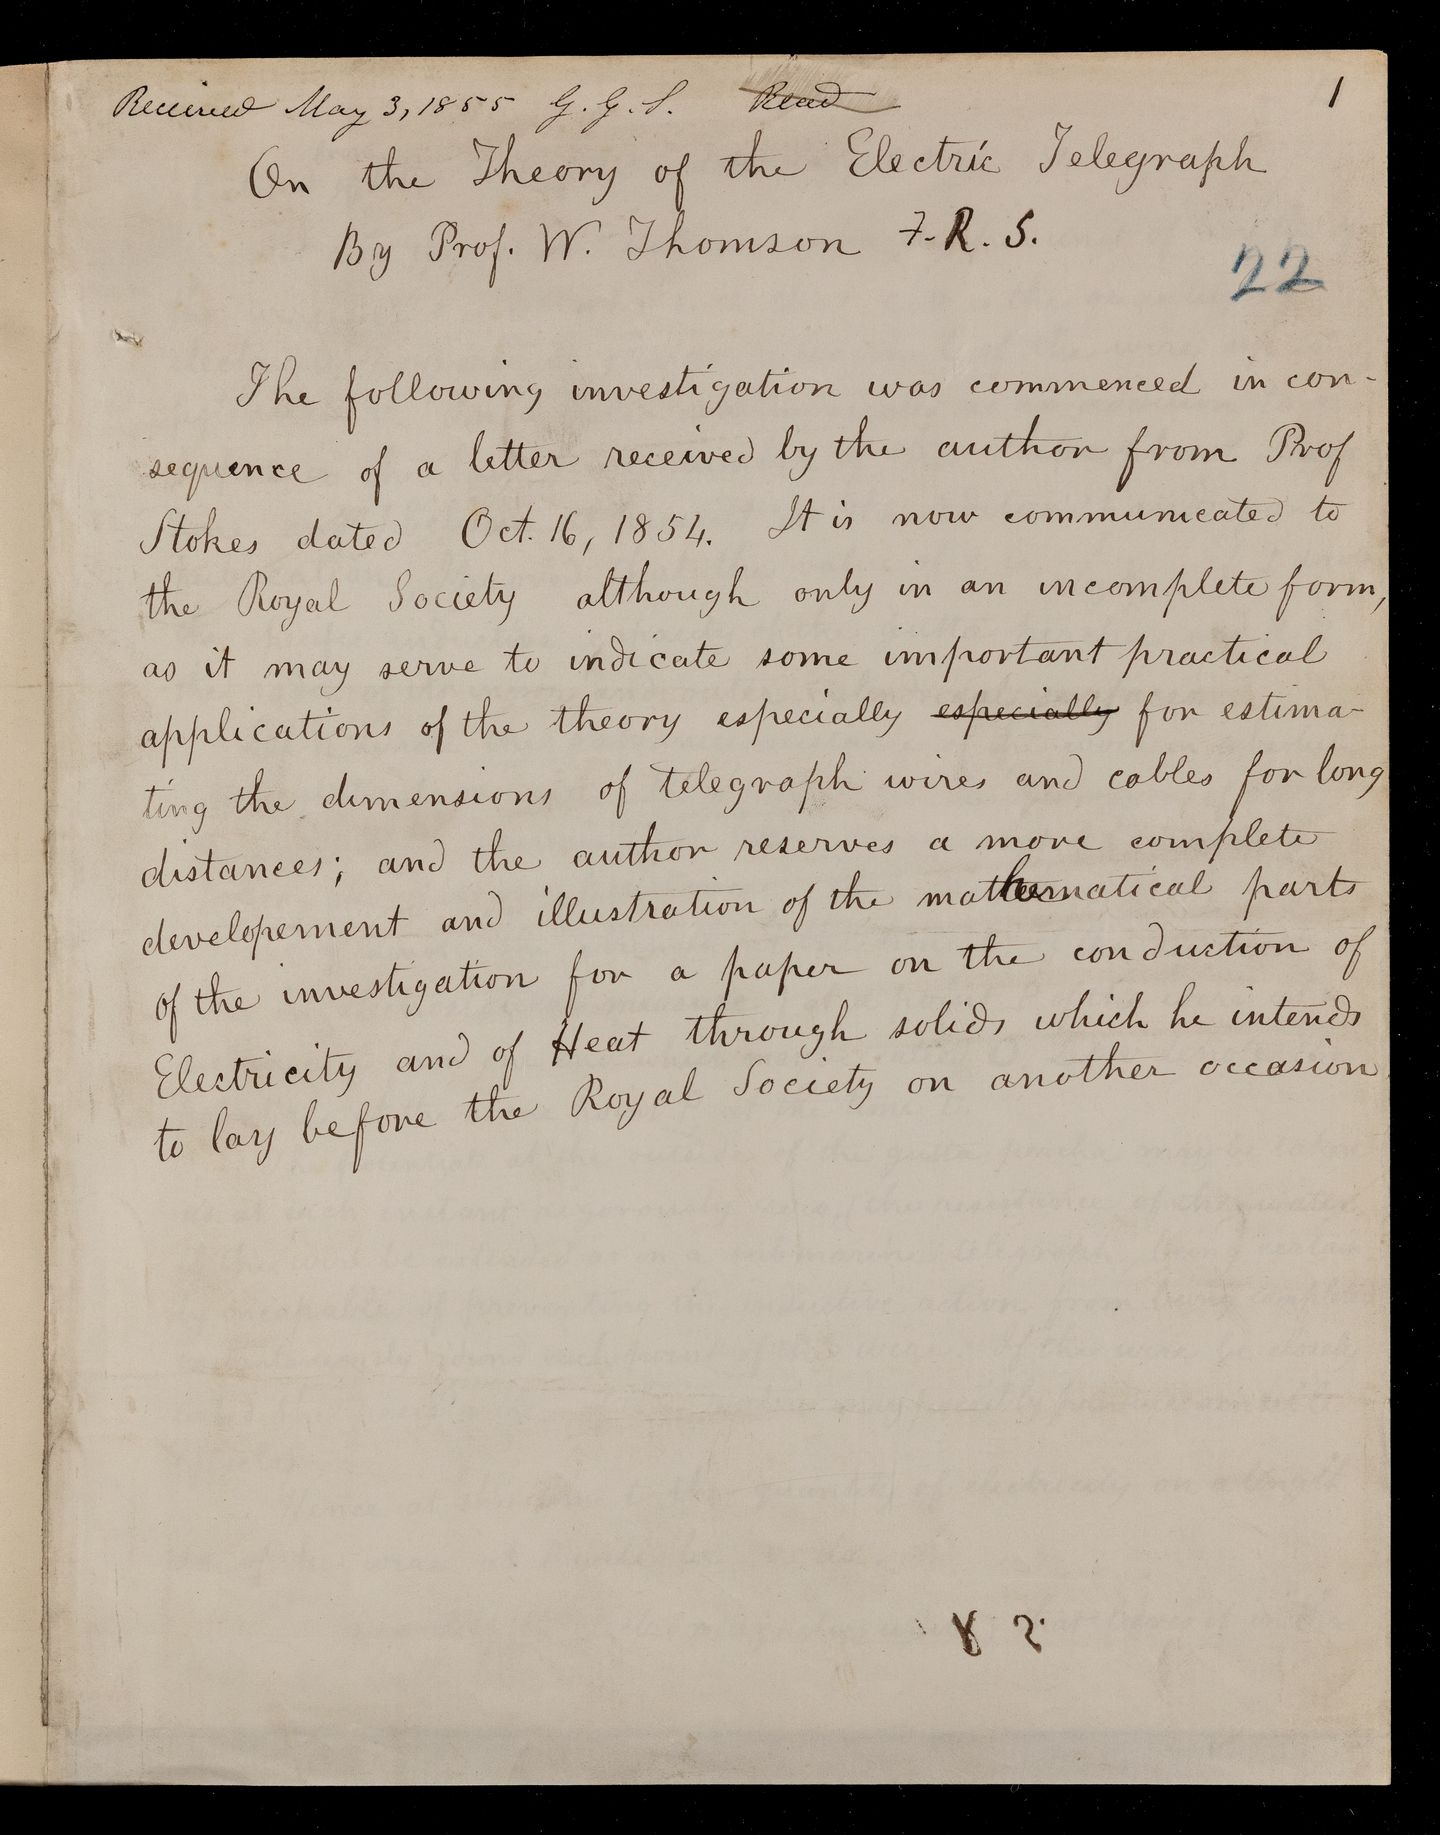 Received May 3, 1855 G. G. S. Read 1
On the Theory of the Electric Telegraph
By Prof. W. Thomson F. R. S.
22
The following investigation was commenced in con-
sequence of a letter received by the author from Prof
Stokes dated Oct. 16, 1854. It is now communicated to
the Royal Society although only in an incomplete form,
as it may serve to indicate some important practical
applications of the theory especially especially for estima-
ting the dimensions of telegraph wires and cables for long
distances; and the author reserves a more complete
developement and illustration of the mathematical parts
of the investigation for a paper on the conduction of
Electricity and of Heat through solids which he intends
to lay before the Royal Society on another occasion
R S.